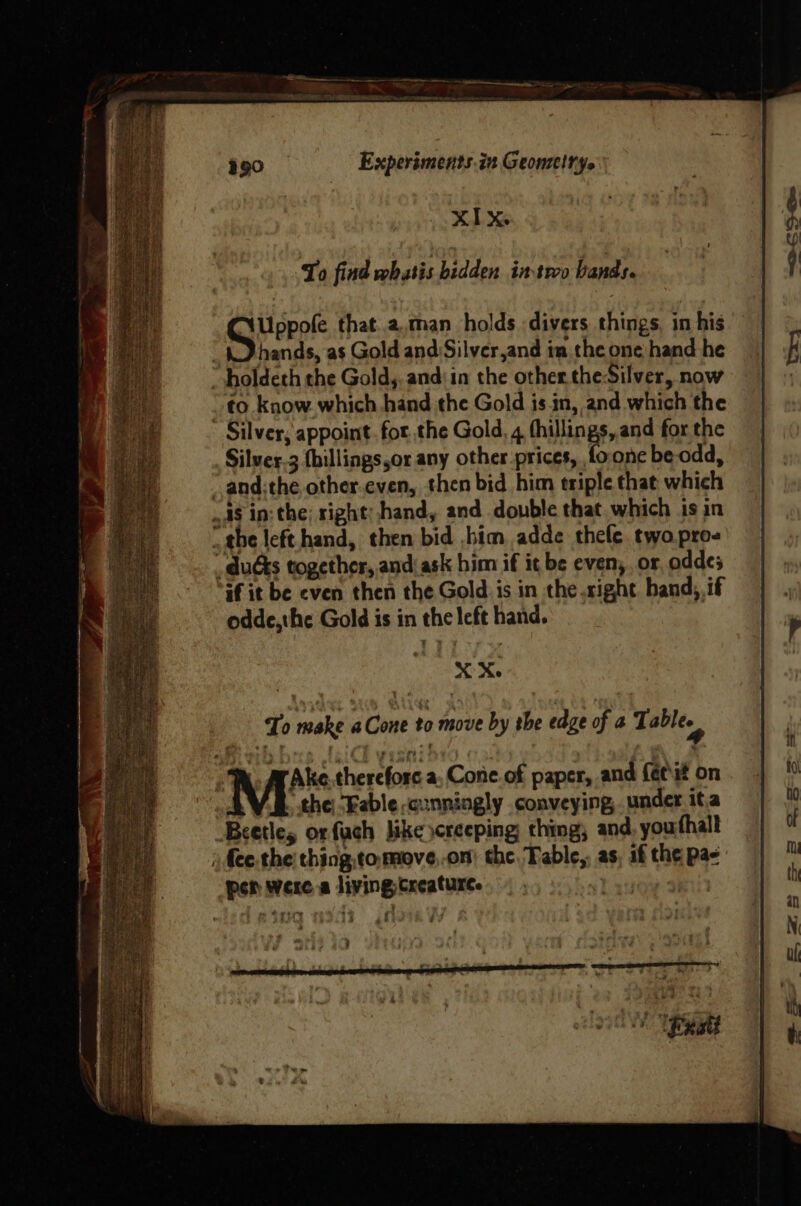 190 Experiments in Geometry.
XIX.
To find whatis hidden in two hands.
SUppoſe that a man holds divers things in his
hands, as Gold and Silver, and in the one hand he
holdeth the Gold, and in the other the Silver, now
to know which hand the Gold is in, and which the
Silver, appoint for the Gold, 4 ſhillings, and for the
Silver 3 ſhillings, or any other prices, ſo one be odd,
and the other even, then bid him triple that which
is in the right hand, and double that which is in
the left hand, then bid him adde theſe two pro-
ducts together, and ask him if it be even, or odde;
if it be even then the Gold is in the right hand, if
odde, the Gold is in the left hand.
XX.
To make a Cone to move by the edge of a Table.
MAke therefore a Cone of paper, and ſet it on
the Table cunningly conveying under it a
Beetle, or ſuch like creeping thing, and you ſhall
ſee the thing to move on the Table, as if the pa-
per were a living creature.